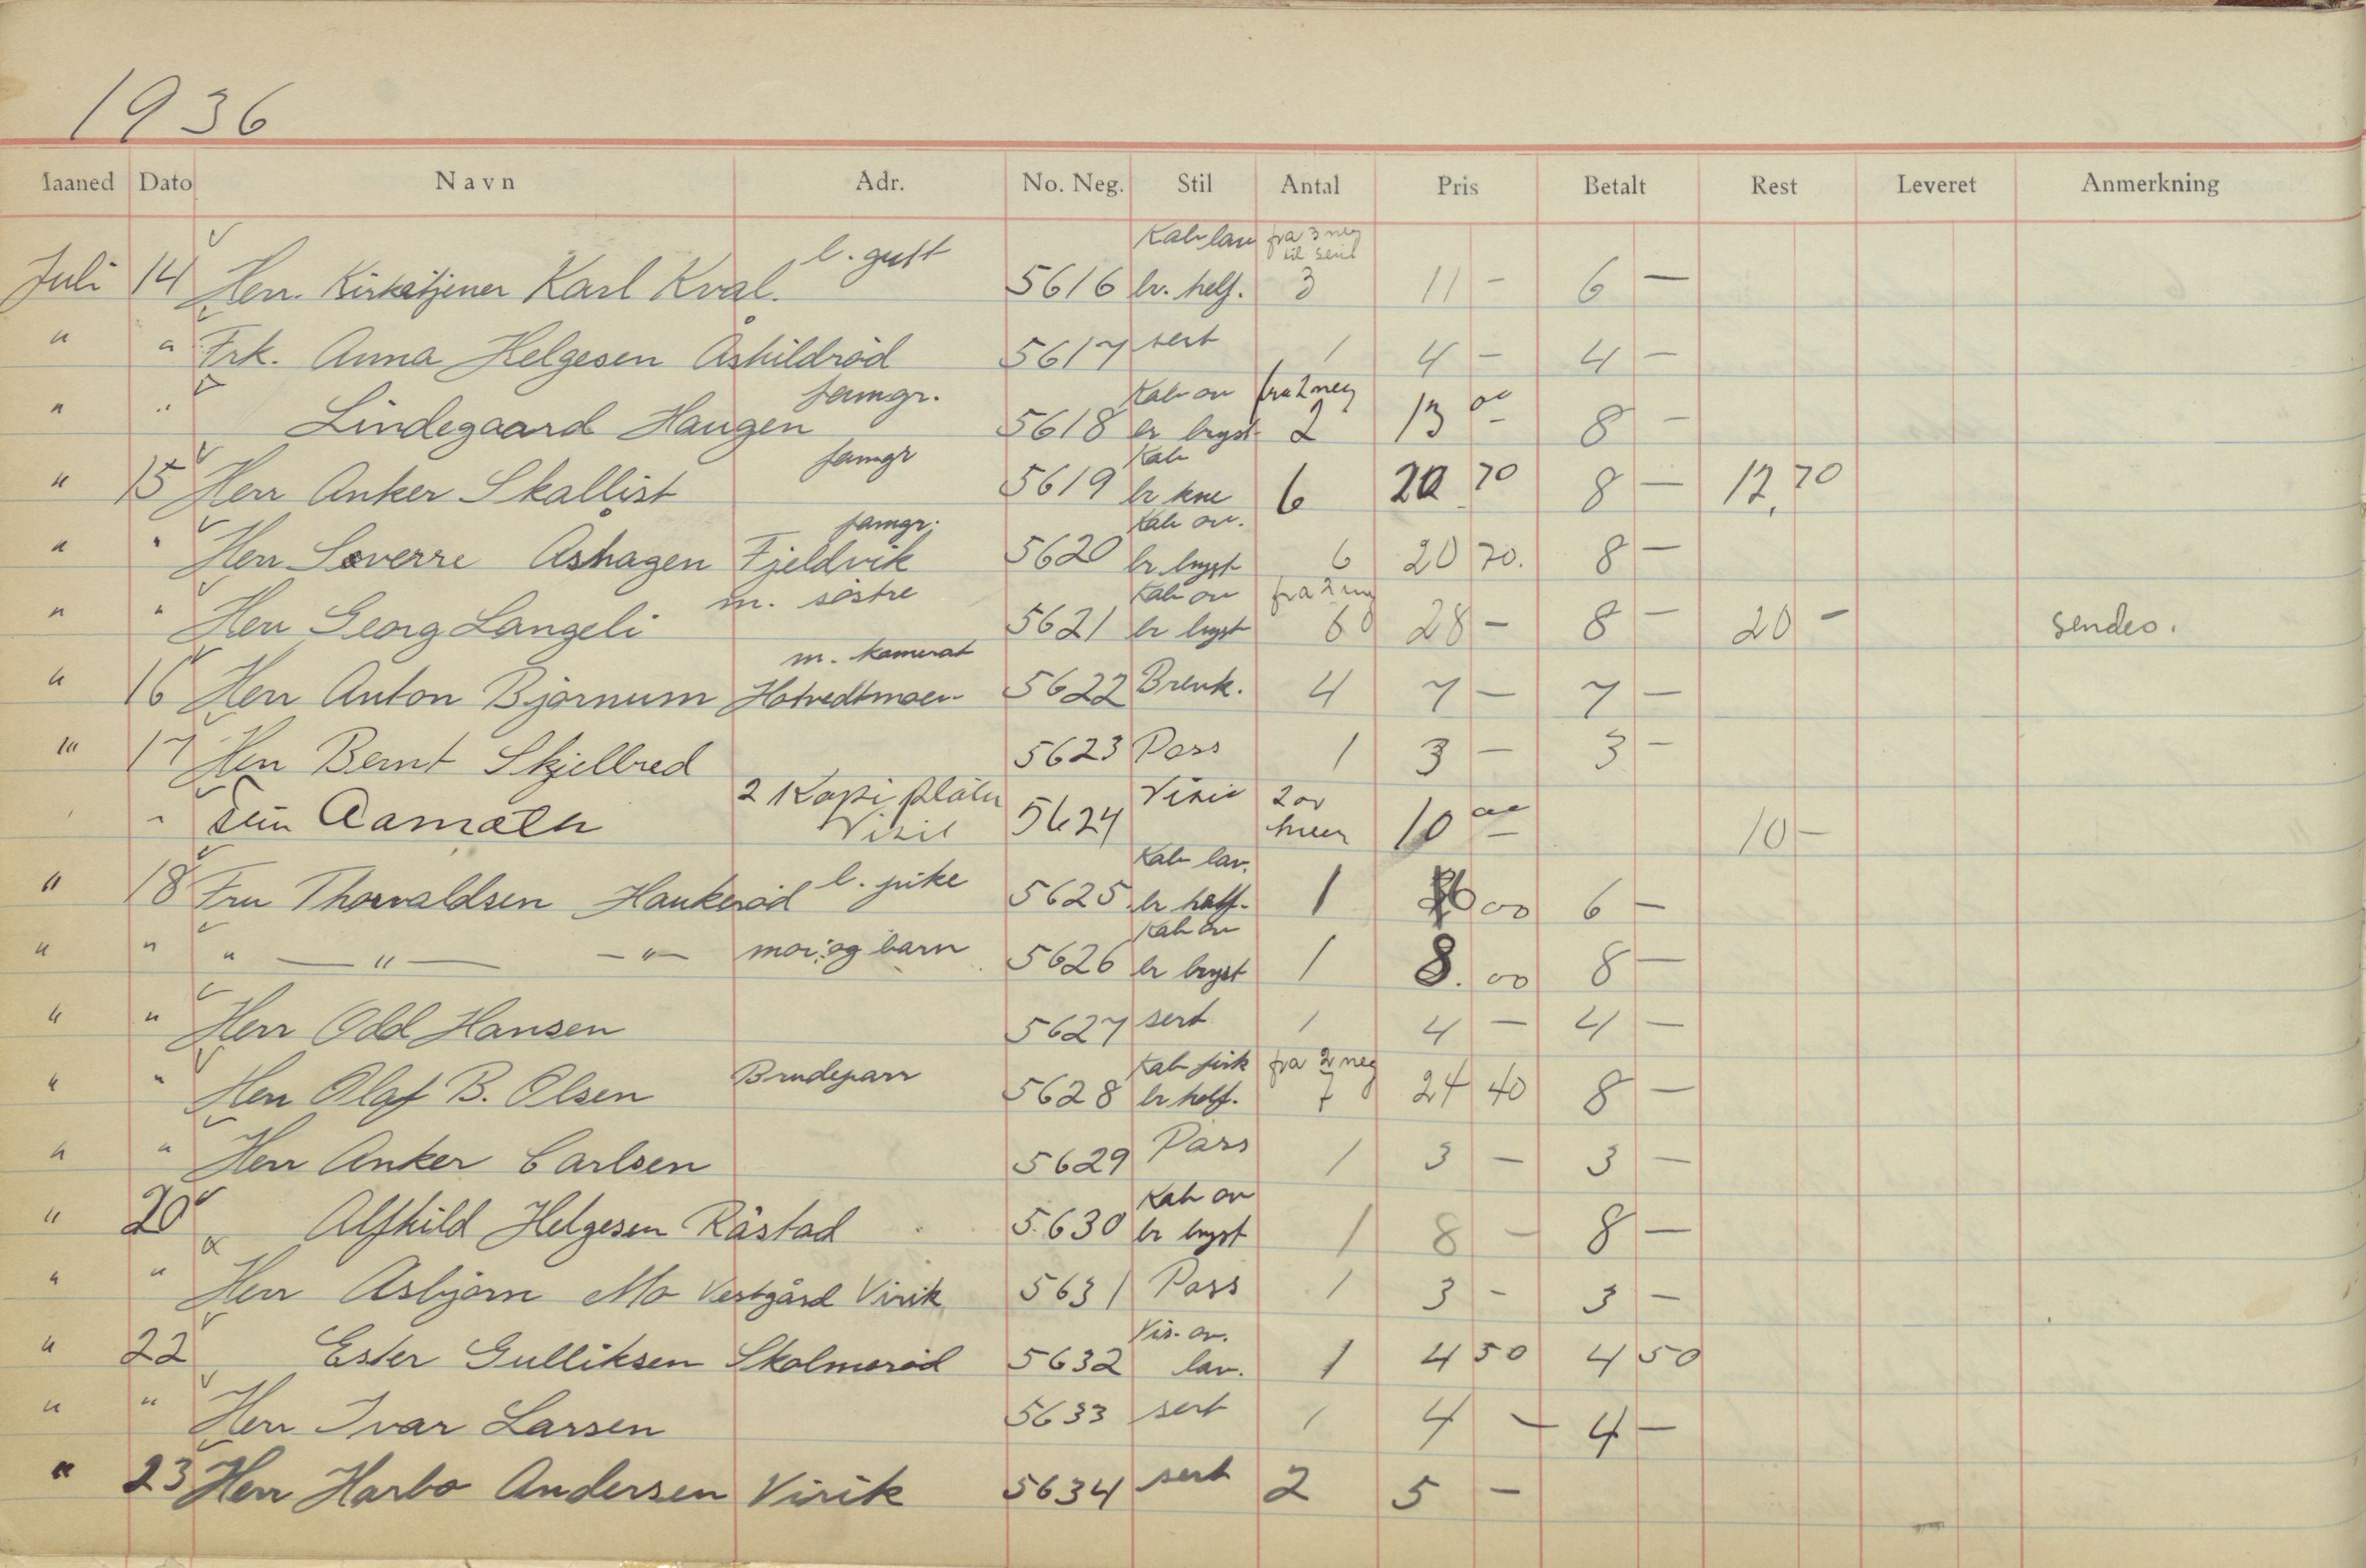 1936
Maaned Dato Navn Adr. No. Neg. Stil Antal Pris Betalt Rest Leveret Anmerkning
l. gutt Kab lav fra 3 neg
Juli 14 Herr. Kirketjener Karl Kval. 5616 br. helf. 3 11 - 6 -
" " Frk. Anna Helgesen Åshildrød 5617 sert 1 4 - 4 -
famgr. Kab ov fra 2 neg
" " Lindegaard Haugen 5618 br bryst 2 13 00 8 -
famgr Kab
" 15 Herr Anker Skallist 5619 br kne 6 20 70 8 - 12,70
famgr. Kab ov.
" " Herr Sverre Åshagen Fjeldvik 5620 br bryst 6 20 70. 8 -
m. søstre Kab ov fra 2 neg
" " Herr Georg Langeli 5621 br bryst 6 28 - 8 - 20 - sendes.
m. kamerat
" 16 Herr Anton Bjørnum Hotvedtmoen 5622 Brevk. 4 7 - 7 -
" 17 Herr Bernt Skjellbred 5623 Pass 1 3 - 3 -
2 Kopi plater Visit 2 av
" Aamoth Visit 5624 hver 10 00 10 -
l. pike Kab lav.
" 18 Fru Thorvaldsen Haukerød 5625 br helf. 1 6 00 6 -
Kab ov
" " " — " — - " - mor og barn 5626 br bryst 1 8. 00 8 -
" " Herr Odd Hansen 5627 sert 1 4 - 4 -
Brudepar Kab fra 2 neg
" " Herr Olaf B. Olsen 5628 br helf. 7 24 40 8 -
" " Herr Anker Carlsen 5629 Pass 1 3 - 3 -
Kab ov
" 20 Alfhild Helgesen Råstad 5630 br bryst 1 8 - 8 -
" " Herr Asbjørn Mo Vestgård Virik 5631 Pass 1 3 - 3 -
Vis. ov.
" 22 Ester Gulliksen Skolmerød 5632 lav. 1 4 50 4 50
" " Herr Ivar Larsen 5633 sert 1 4 - 4 -
" 23 Herr Harbo Andersen Virik 5634 sert 2 5 -